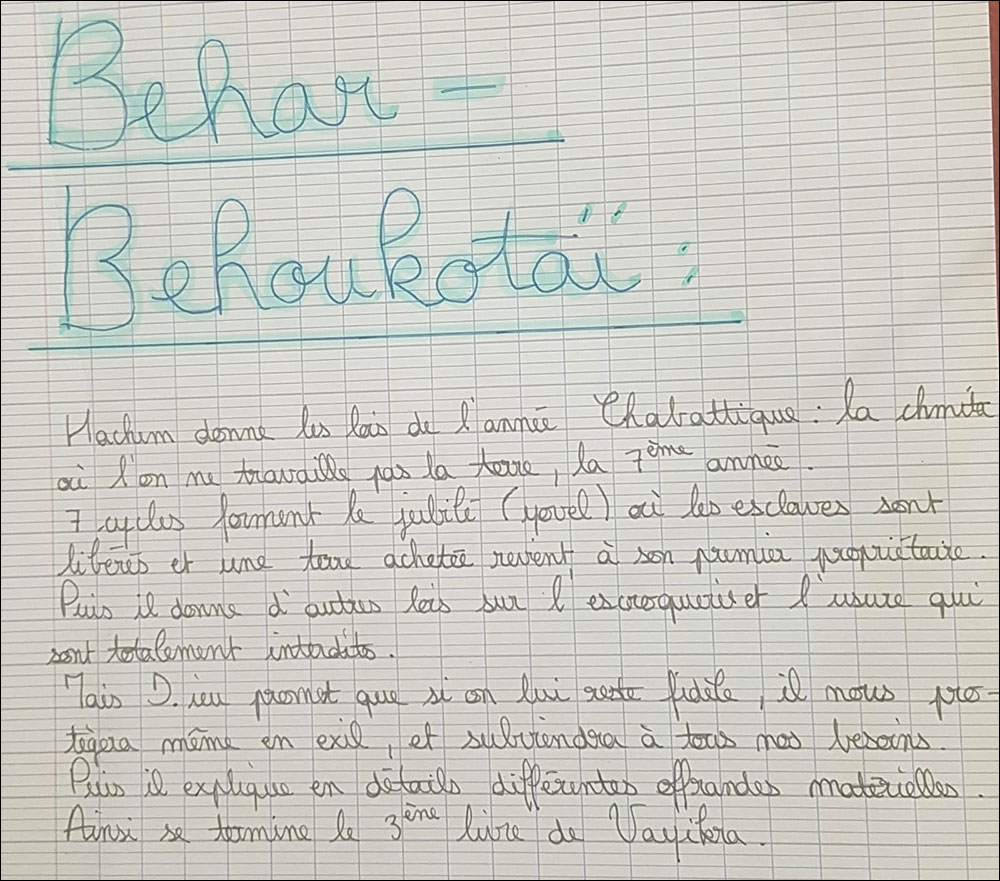 Behar -
Behoukotaï :
Hachem donne les lois de l'année Chabattique : la chmita
où l'on ne travaille pas la terre, la 7ème année.
7 cycles forment le jubilé (yovel) où les esclaves sont
libérés et une terre achetée revient à son premier propriétaire.
Puis il donne d'autres lois sur l'escroquerie et l'usure qui
sont totalement interdits.
Mais D.ieu promet que si on lui reste fidèle, il nous pro-
tègera même en exil, et subviendra à tous nos besoins.
Puis il explique en détails différentes offrandes matérielles.
Ainsi se termine le 3ème livre de Vayikra.